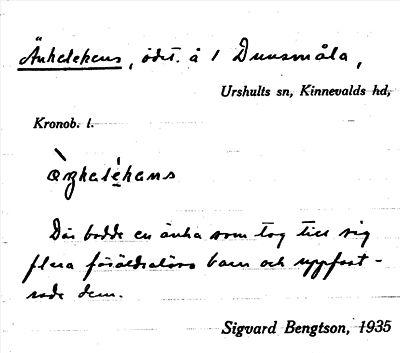 Änkelekens, ödet. å 1 Dunsmåla,
Urshults sn, Kinnevalds hd,
Kronob. l.
Där bodde en änka som tog till sig
flera föräldralösa barn och uppfost-
rade dem.
Sigvard Bengtson, 1935